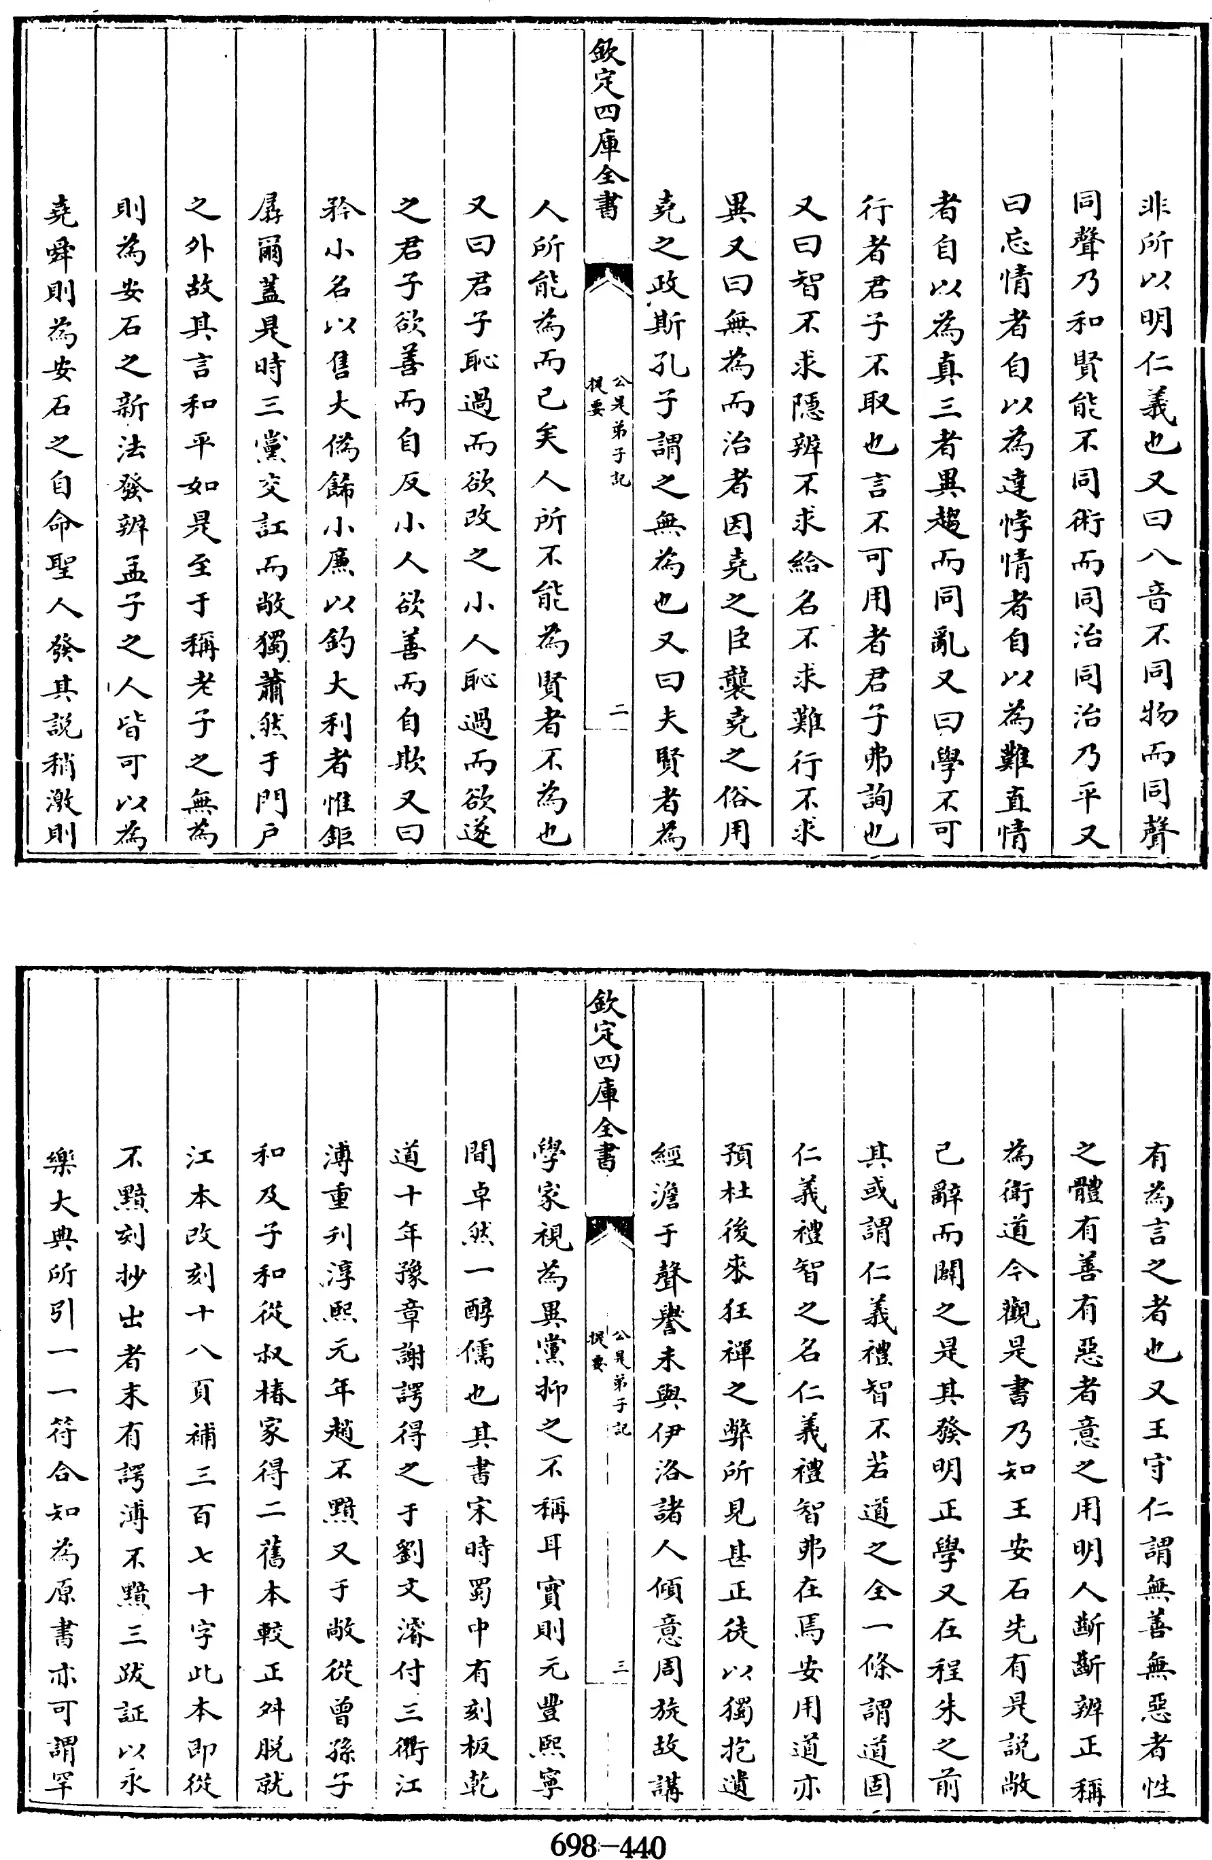 非所以明仁義也又曰八音不同物而同聲
同聲乃和賢能不同術而同治同治乃平又
曰忘情者自以為達悖情者自以為難直情
者自以為真三者異趨而同亂又曰學不可
行者君子不取也言不可用者君子弗詢也
又曰智不求隱辨不求給名不求難行不求
異又曰無為而治者因堯之臣襲堯之俗用
堯之政斯孔子謂之無為也又曰夫賢者為
欽定四庫全書
公是弟子記
提要
二
人所能為而已矣人所不能為賢者不為也
又曰君子恥過而欲改之小人恥過而欲遂
之君子欲善而自反小人欲善而自欺又曰
矜小名以售大偽飾小廉以釣大利者惟鉅
孱爾蓋是時三黨交訌而敞獨蕭然于門戶
之外故其言和平如是至于稱老子之無為
則為安石之新法發辨孟子之人皆可以為
堯舜則為安石之自命聖人發其説稍激則
有為言之者也又王守仁謂無善無惡者性
之體有善有惡者意之用明人齗齗辨正稱
為衛道今觀是書乃知王安石先有是説敞
已辭而闢之是其發明正學又在程朱之前
其或謂仁義禮智不若道之全一條謂道固
仁義禮智之名仁義禮智弗在焉安用道亦
預杜後來狂禪之弊所見甚正徒以獨抱遺
經澹于聲譽未與伊洛諸人傾意周旋故講
欽定四庫全書
公是弟子記
提要
三
學家視為異黨抑之不稱耳實則元豐熙寧
間卓然一醇儒也其書宋時蜀中有刻板乾
道十年豫章謝諤得之于劉文濬付三衢江
溥重刋淳熙元年趙不黯又于敞從曾孫子
和及子和從叔椿家得二舊本較正舛脱就
江本改刻十八頁補三百七十字此本即從
不黯刻抄出者末有諤溥不黯三跋証以永
樂大典所引一一符合知為原書亦可謂罕
698-440